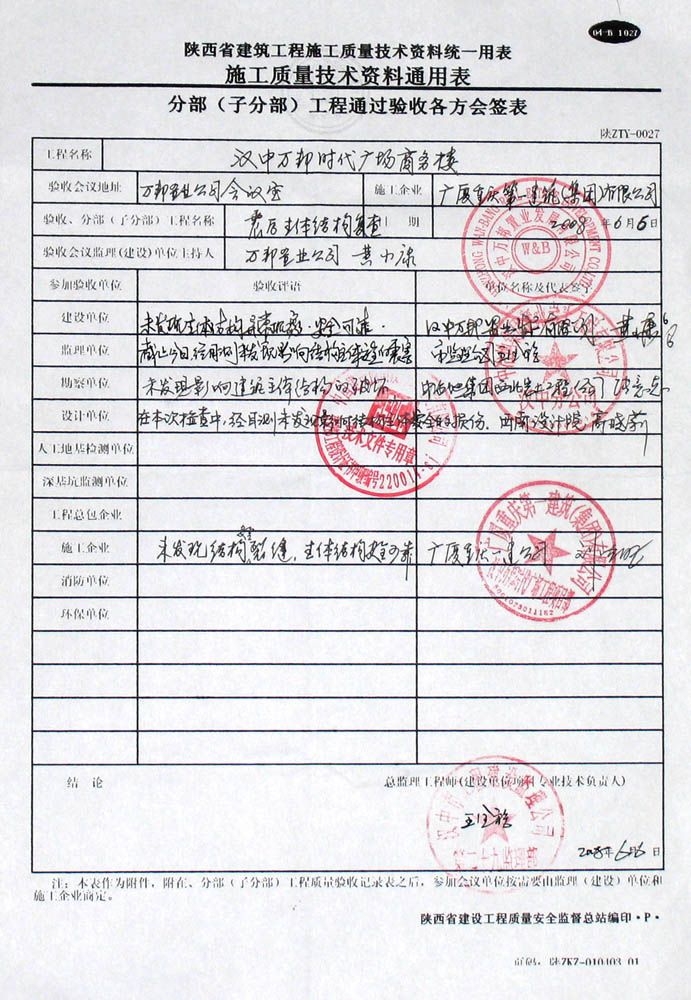 04-B 1027
陕西省建筑工程施工质量技术资料统一用表
施工质量技术资料通用表
分部（子分部）工程通过验收各方会签表
陕ZTY-0027
工程名称 汉中万邦时代广场商务楼
验收会议地址 万邦置业公司会议室 施工企业 广厦重庆第一建筑(集团)有限公司
验收、分部（子分部）工程名称 震后主体结构复查 日期 2008年6月6日
验收会议监理(建设)单位主持人 万邦置业公司 黄小康
参加验收单位 验收评语 单位名称及代表签字
建设单位 未发现主体结构 安全可靠 汉中万邦置业 有限公司
监理单位 截止今日
勘察单位 未发现影响建筑主体结构的破坏
设计单位 在本次检查中,经目测未发现影响结构主体安全的损伤. 设计院
人工地基检测单位
深基坑监测单位
工程总包企业
施工企业 未发现结构裂缝,主体结构安全可靠 广厦重庆一建公司
消防单位
环保单位
结 论 总监理工程师(建设单位项目专业技术负责人)
2008年6月6日
注：本表作为附件，附在、分部（子分部）工程质量验收记录表之后，参加会议单位按需要由监理（建设）单位和
施工企业商定。
陕西省建设工程质量安全监督总站编印·P·
页码：陕ZKZ-010403 01
W&B
技术文件专用章